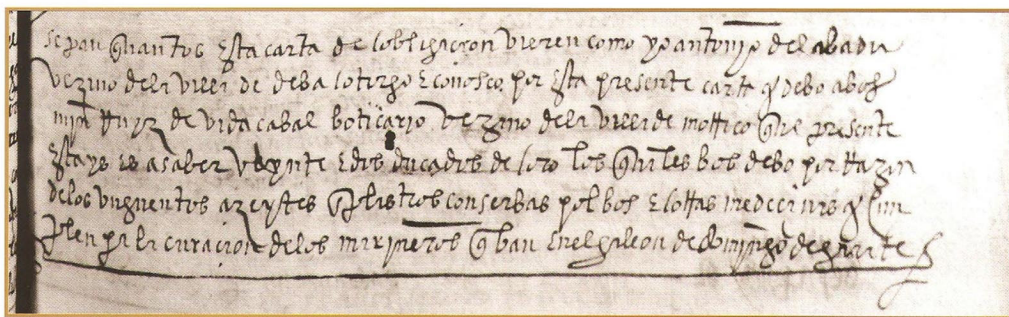 sepan quantos esta carta de lobligacion vieren como yo antonyo del abadia
vezino dela villa de deba lotorgo e conosco por esta presente carta q debo a bos
mjn Ruyz de vidacabal boticario vezino dela villa de motrico que presente
estays es a saber veynte e dos ducados de loro los quales bos debo por Razon
delos vnguentos azeytes enplastros conserbas polbos e lottas medecinas q cun
plen pa la curacion delos marineros q ban en el galeon de domingo de garate